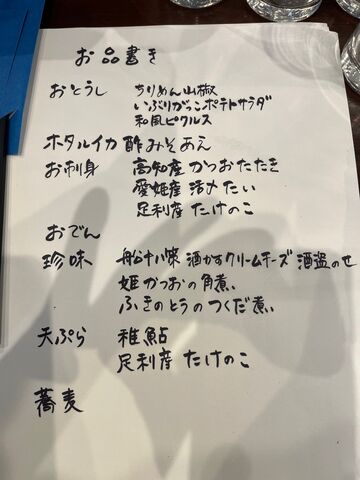 お品書き
おとうし ちりめん山椒
いぶりがっこポテトサラダ
和風ピクルス
ホタルイカ 酢みそあえ
お刺身 高知産 かつおたたき
愛媛産 活〆たい
足利産 たけのこ
おでん
珍味 酒かすクリームチーズ 酒盗のせ
姫かつおの角煮
ふきのとうのつくだ煮
天ぷら 稚鮎
足利産 たけのこ
蕎麦